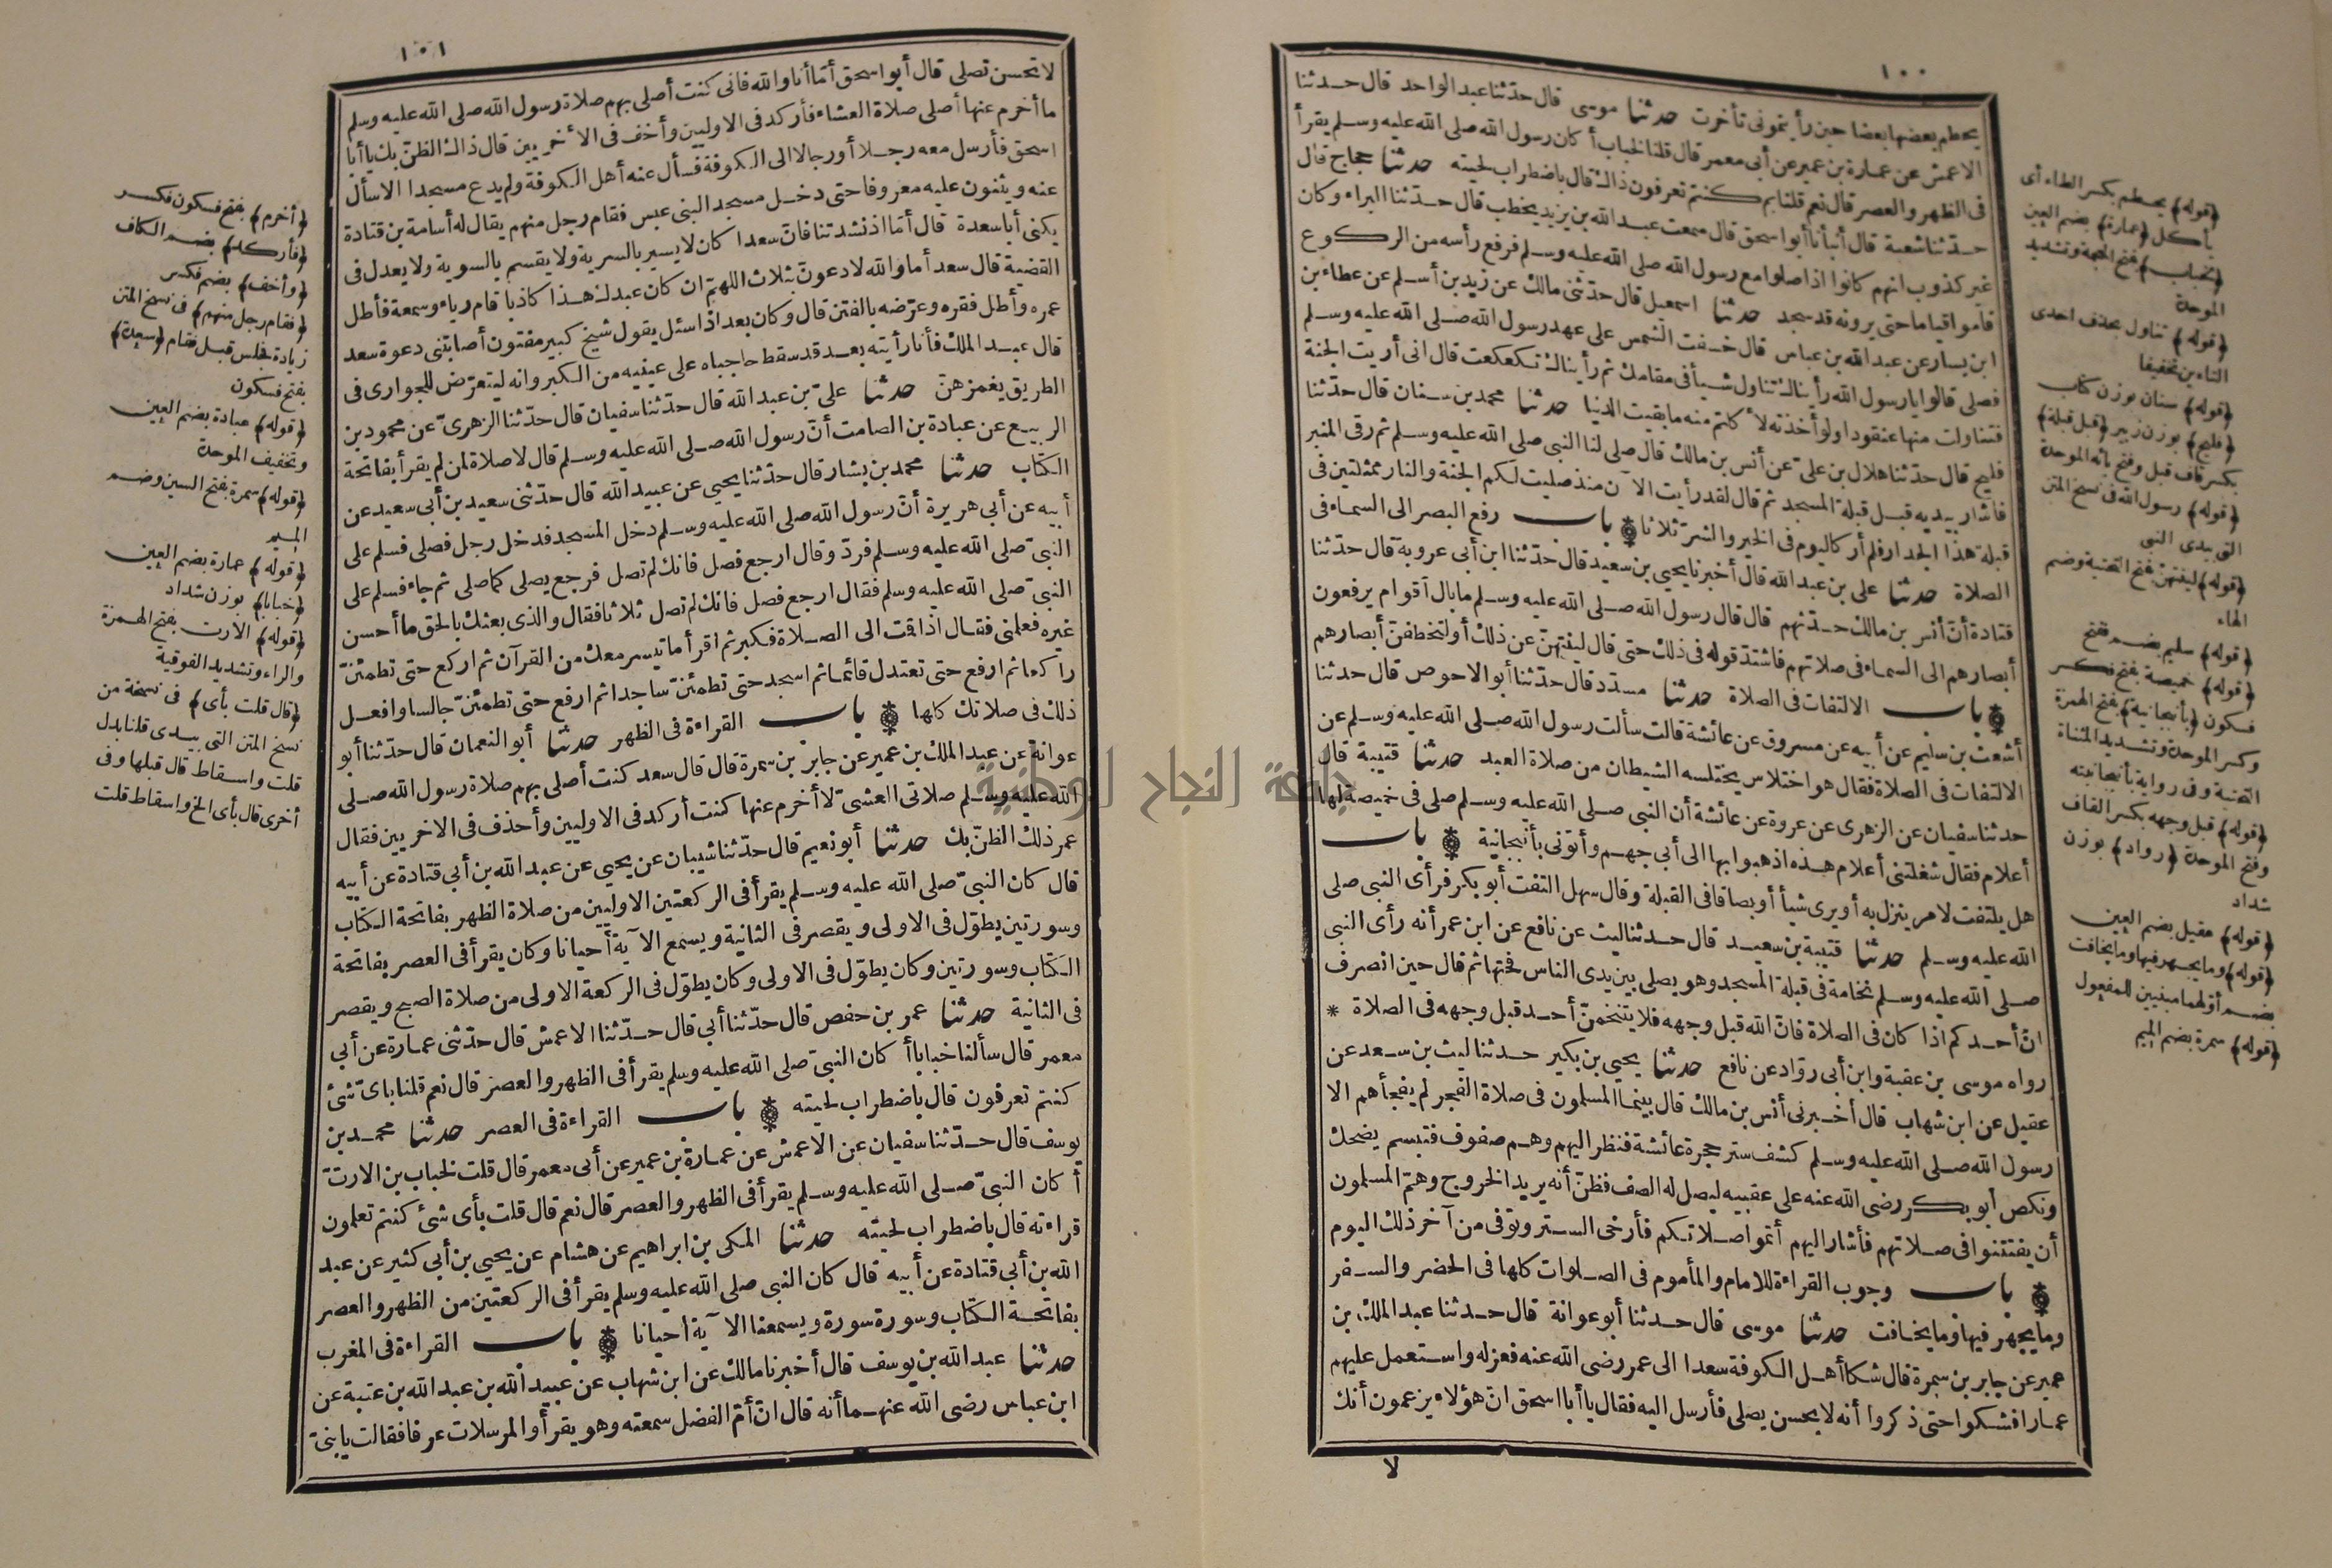 ١٠٠
يحطم بعضها بعضا حين رأيتموني تأخرت حدثنا موسى قال حدّثنا عبد الواحد قال حدثنا
الاعمش عن عمارة بن عمير عن أبى معمر قال قلنا لخباب أكان رسول الله صلى الله عليه وسلم يقرأ
فى الظهر والعصر قال نعم قلنا بم كنتم تعرفون ذاك قال باضطراب لحيته حدثنا حجاج قال
حدّثنا شعبة قال أنبأنا أبو اسحق قال سمعت عبد الله بن يزيد يخطب قال حدّثنا البراء وكان
غير كذوب انهم كانوا اذا صلوا مع رسول الله صلى الله عليه وسلم فرفع رأسه من الركوع
قاموا قياما حتى يرونه قد سجد حدثنا اسمعيل قال حدّثنى مالك عن زيد بن أسلم عن عطاء بن
ابن يسار عن عبد الله بن عباس قال خسفت الشمس على عهد رسول الله صلى الله عليه وسلم
فصلى قالوا يا رسول الله رأيناك تناول شيأ فى مقامك ثم رأيناك تكعكعت قال انى أريت الجنة
فتناولت منها عنقودا ولو أخذته لأكلتم منه ما بقيت الدنيا حدثنا محمد بن سنان قال حدّثنا
فليح قال حدّثنا هلال بن على عن أنس بن مالك قال صلى لنا النبى صلى الله عليه وسلم ثم رقى المنبر
فأشار بيديه قبل قبلة المسجد ثم قال لقد رأيت الآن منذ صليت لكم الجنة والنار ممثلتين فى
قبلة هذا الجدار فلم أر كاليوم فى الخير والشر ثلاثا باب رفع البصر الى السماء فى
الصلاة حدثنا على بن عبد الله قال أخبرنا يحيى بن سعيد قال حدّثنا ابن أبى عروبة قال حدّثنا
قتادة أن أنس بن مالك حدّثهم قال قال رسول الله صلى الله عليه وسلم ما بال أقوام يرفعون
أبصارهم الى السماء فى صلاتهم فاشتدّ قوله فى ذلك حتى قال لينتهنّ عن ذلك أو لتخطفنّ أبصارهم
باب الالتفات فى الصلاة حدثنا مسدّد قال حدّثنا أبو الاحوص قال حدثنا
أشعث بن سليم عن أبيه عن مسروق عن عائشة قالت سألت رسول الله صلى الله عليه وسلم عن
الالتفات فى الصلاة فقال هو اختلاس يختلسه الشيطان من صلاة العبد حدثنا قتيبة قال
حدثنا سفيان عن الزهرى عن عروة عن عائشة أن النبى صلى الله عليه وسلم صلى فى خميصة لها
أعلام فقال شغلتنى أعلام هذه اذهبوا بها الى أبى جهم وأتونى بأنبجانية باب
هل يلتفت لامر ينزل به أو يرى شيأ أو بصاقا فى القبلة وقال سهل التفت أبو بكر فرأى النبى صلى
الله عليه وسلم حدثنا قتيبة بن سعيد قال حدثنا ليث عن نافع عن ابن عمر أنه رأى النبى
صلى الله عليه وسلم نخامة فى قبلة المسجد وهو يصلى بين يدى الناس فحتها ثم قال حين انصرف
انّ أحدكم اذا كان فى الصلاة فانّ الله قبل وجهه فلا يتنخمنّ أحد قبل وجهه فى الصلاة *
رواه موسى بن عقبة وابن أبى روّاد عن نافع حدثنا يحيى بن بكير حدثنا ليث بن سعد عن
عقيل عن ابن شهاب قال أخبرنى أنس بن مالك قال بينما المسلمون فى صلاة الفجر لم يفجأهم الا
رسول الله صلى الله عليه وسلم كشف ستر حجرة عائشة فنظر اليهم وهم صفوف فتبسم يضحك
ونكص أبو بكر رضى الله عنه على عقبيه ليصل له الصف فظنّ أنه يريد الخروج وهمّ المسلمون
أن يفتتنوا فى صلاتهم فأشار اليهم أتموا صلاتكم فأرخى الستر وتوفى من آخر ذلك اليوم
باب وجوب القراءة للامام والمأموم فى الصلوات كلها فى الحضر والسفر
وما يجهر فيها وما يخافت حدثنا موسى قال حدثنا أبو عوانة قال حدثنا عبد الملك بن
عمير عن جابر بن سمرة قال شكا أهل الكوفة سعدا الى عمر رضى الله عنه فعزله واستعمل عليهم
عمارا فشكوا حتى ذكروا أنه لا يحسن يصلى فأرسل اليه فقال يا أبا اسحق انّ هؤلاء يزعمون أنك
لا
﴿قوله﴾ يحطم بكسر الطاء أى
يأكل ﴿عمارة﴾ بضم العين
﴿لخباب﴾ بفتح المعجمة وتشديد
الموحدة
﴿قوله﴾ تناول بحذف احدى
التاءين تخفيفا
﴿قوله﴾ سنان بوزن كتاب
﴿فليح﴾ بوزن زبير ﴿قبل قبلة﴾
بكسر قاف قبل وفتح بائه الموحدة
﴿قوله﴾ رسول الله فى نسخ المتن
التى بيدى النبى
﴿قوله﴾ لينتهنّ بفتح التحتية وضم
الهاء
﴿قوله﴾ سليم بضم ففتح
﴿قوله﴾ خميصة بفتح فكسر
فسكون ﴿بأنبجانية﴾ بفتح الهمزة
وكسر الموحدة وتشديد المثناة
التحتية وفى رواية بأنبجانيته
﴿قوله﴾ قبل وجهه بكسر القاف
وفتح الموحدة ﴿رواد﴾ بوزن
شداد
﴿قوله﴾ عقيل بضم العين
﴿قوله﴾ وما يجهر فيها وما يخافت
بضم أوّلهما مبنيين للمفعول
﴿قوله﴾ سمرة بضم الميم
١٠١
لا تحسن تصلى قال أبو اسحق أمّا أنا والله فانى كنت أصلى بهم صلاة رسول الله صلى الله عليه وسلم
ما أخرم عنها أصلى صلاة العشاء فأركد فى الاوليين وأخف فى الأخريين قال ذاك الظنّ بك يا أبا
اسحق فأرسل معه رجلا أو رجالا الى الكوفة فسأل عنه أهل الكوفة ولم يدع مسجدا الا سأل
عنه ويثنون عليه معروفا حتى دخل مسجد البنى عبس فقام رجل منهم يقال له أسامة بن قتادة
يكنى أبا سعدة قال أمّا اذ نشدتنا فانّ سعدا كان لا يسير بالسرية ولا يقسم بالسوية ولا يعدل فى
القضية قال سعد أما والله لادعونّ بثلاث اللهمّ ان كان عبدك هذا كاذبا قام رياء وسمعة فأطل
عمره وأطل فقره وعرّضه بالفتن قال وكان بعد اذا سئل يقول شيخ كبير مفتون أصابتنى دعوة سعد
قال عبد الملك فأنا رأيته بعد قد سقط حاجباه على عينيه من الكبر وانه ليتعرّض للجوارى فى
الطريق يغمزهنّ حدثنا علىّ بن عبد الله قال حدّثنا سفيان قال حدّثنا الزهرىّ عن محمود بن
الربيع عن عبادة بن الصامت أنّ رسول الله صلى الله عليه وسلم قال لا صلاة لمن لم يقرأ بفاتحة
الكتاب حدثنا محمد بن بشار قال حدّثنا يحيى عن عبيد الله قال حدّثنى سعيد بن أبى سعيد عن
أبيه عن أبى هريرة أنّ رسول الله صلى الله عليه وسلم دخل المسجد فدخل رجل فصلى فسلم على
النبىّ صلى الله عليه وسلم فردّ وقال ارجع فصل فانك لم تصل فرجع يصلى كما صلى ثم جاء فسلم على
النبىّ صلى الله عليه وسلم فقال ارجع فصل فانك لم تصل ثلاثا فقال والذى بعثك بالحق ما أحسن
غيره فعلمنى فقال اذا قمت الى الصلاة فكبر ثم اقرأ ما تيسر معك من القرآن ثم اركع حتى تطمئنّ
راكعا ثم ارفع حتى تعتدل قائما ثم اسجد حتى تطمئنّ ساجدا ثم ارفع حتى تطمئنّ جالسا وافعل
ذلك فى صلاتك كلها باب القراءة فى الظهر حدثنا أبو النعمان قال حدّثنا أبو
عوانة عن عبد الملك بن عمير عن جابر بن سمرة قال قال سعد كنت أصلى بهم صلاة رسول الله صلى
الله عليه وسلم صلاتى العشىّ لا أخرم عنها كنت أركد فى الاوليين وأحذف فى الاخريين فقال
عمر ذلك الظنّ بك حدثنا أبو نعيم قال حدّثنا شيبان عن يحيى عن عبد الله بن أبى قتادة عن أبيه
قال كان النبىّ صلى الله عليه وسلم يقرأ فى الركعتين الاوليين من صلاة الظهر بفاتحة الكتاب
وسورتين يطوّل فى الاولى ويقصر فى الثانية ويسمع الآية أحيانا وكان يقرأ فى العصر بفاتحة
الكتاب وسورتين وكان يطوّل فى الاولى وكان يطوّل فى الركعة الاولى من صلاة الصبح ويقصر
فى الثانية حدثنا عمر بن حفص قال حدّثنا أبى قال حدّثنا الاعمش قال حدّثنى عمارة عن أبى
معمر قال سألنا خبابا أكان النبىّ صلى الله عليه وسلم يقرأ فى الظهر والعصر قال نعم قلنا باىّ شئ
كنتم تعرفون قال باضطراب لحيته باب القراءة فى العصر حدثنا محمد بن
يوسف قال حدّثنا سفيان عن الاعمش عن عمارة بن عمير عن أبى معمر قال قلت لخباب بن الارتّ
أكان النبىّ صلى الله عليه وسلم يقرأ فى الظهر والعصر قال نعم قال قلت بأى شئ كنتم تعلمون
قراءته قال باضطراب لحيته حدثنا المكى بن ابراهيم عن هشام عن يحيى بن أبى كثير عن عبد
الله بن أبى قتادة عن أبيه قال كان النبى صلى الله عليه وسلم يقرأ فى الركعتين من الظهر والعصر
بفاتحة الكتاب وسورة سورة ويسمعنا الآية أحيانا باب القراءة فى المغرب
حدثنا عبد الله بن يوسف قال أخبرنا مالك عن ابن شهاب عن عبيد الله بن عبد الله بن عتبة عن
ابن عباس رضى الله عنهما أنه قال انّ أمّ الفضل سمعته وهو يقرأ والمرسلات عرفا فقالت يا بنىّ
﴿أخرم﴾ بفتح فسكون فكسر
﴿فأركد﴾ بضم الكاف
﴿وأخف﴾ بضم فكسر
﴿فقام رجل منهم﴾ فى نسخ المتن
زيادة فجلس قبل فقام ﴿سعدة﴾
بفتح فسكون
﴿قوله﴾ عبادة بضم العين
وتخفيف الموحدة
﴿قوله﴾ سمرة بفتح السين وضم
الميم
﴿قوله﴾ عمارة بضم العين
﴿خبابا﴾ بوزن شداد
﴿قوله﴾ الارت بفتح الهمزة
والراء وتشديد الفوقية
﴿قال قلت بأى﴾ فى نسخة من
نسخ المتن التى بيدى قلنا بدل
قلت واسقاط قال قبلها وفى
أخرى قال بأى الخ واسقاط قلت
جامعة النجاح الوطنية